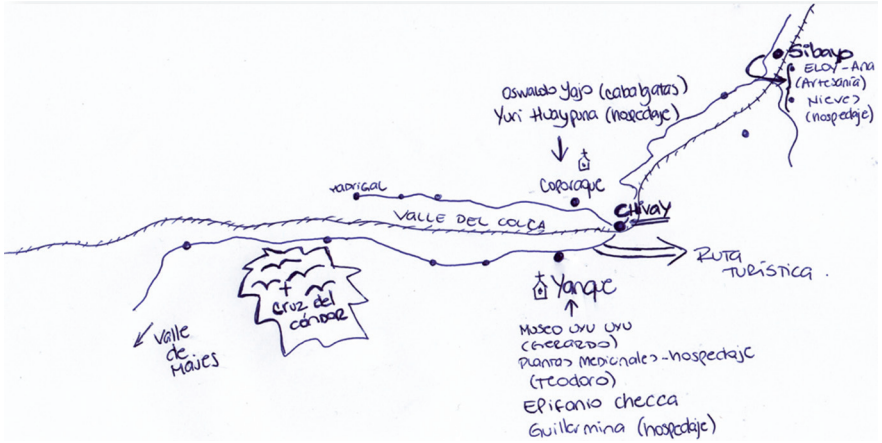 Sibayo
• ELOY-Ana
(Artesanía)
• Nieves
(hospedaje)
Oswaldo Yajo (cabalgatas)
Yuri Huaypuna (hospedaje)
Coporaque
Madrigal
VALLE DEL COLCA
CHIVAY
RUTA
TURÍSTICA.
Cruz del
cóndor
Valle
de
Majes
Yanque
Museo UYU UYU
(GERARDO)
Plantas Medicinales-hospedaje
(Teodoro)
Epifanio checca
Guillermina (hospedaje)